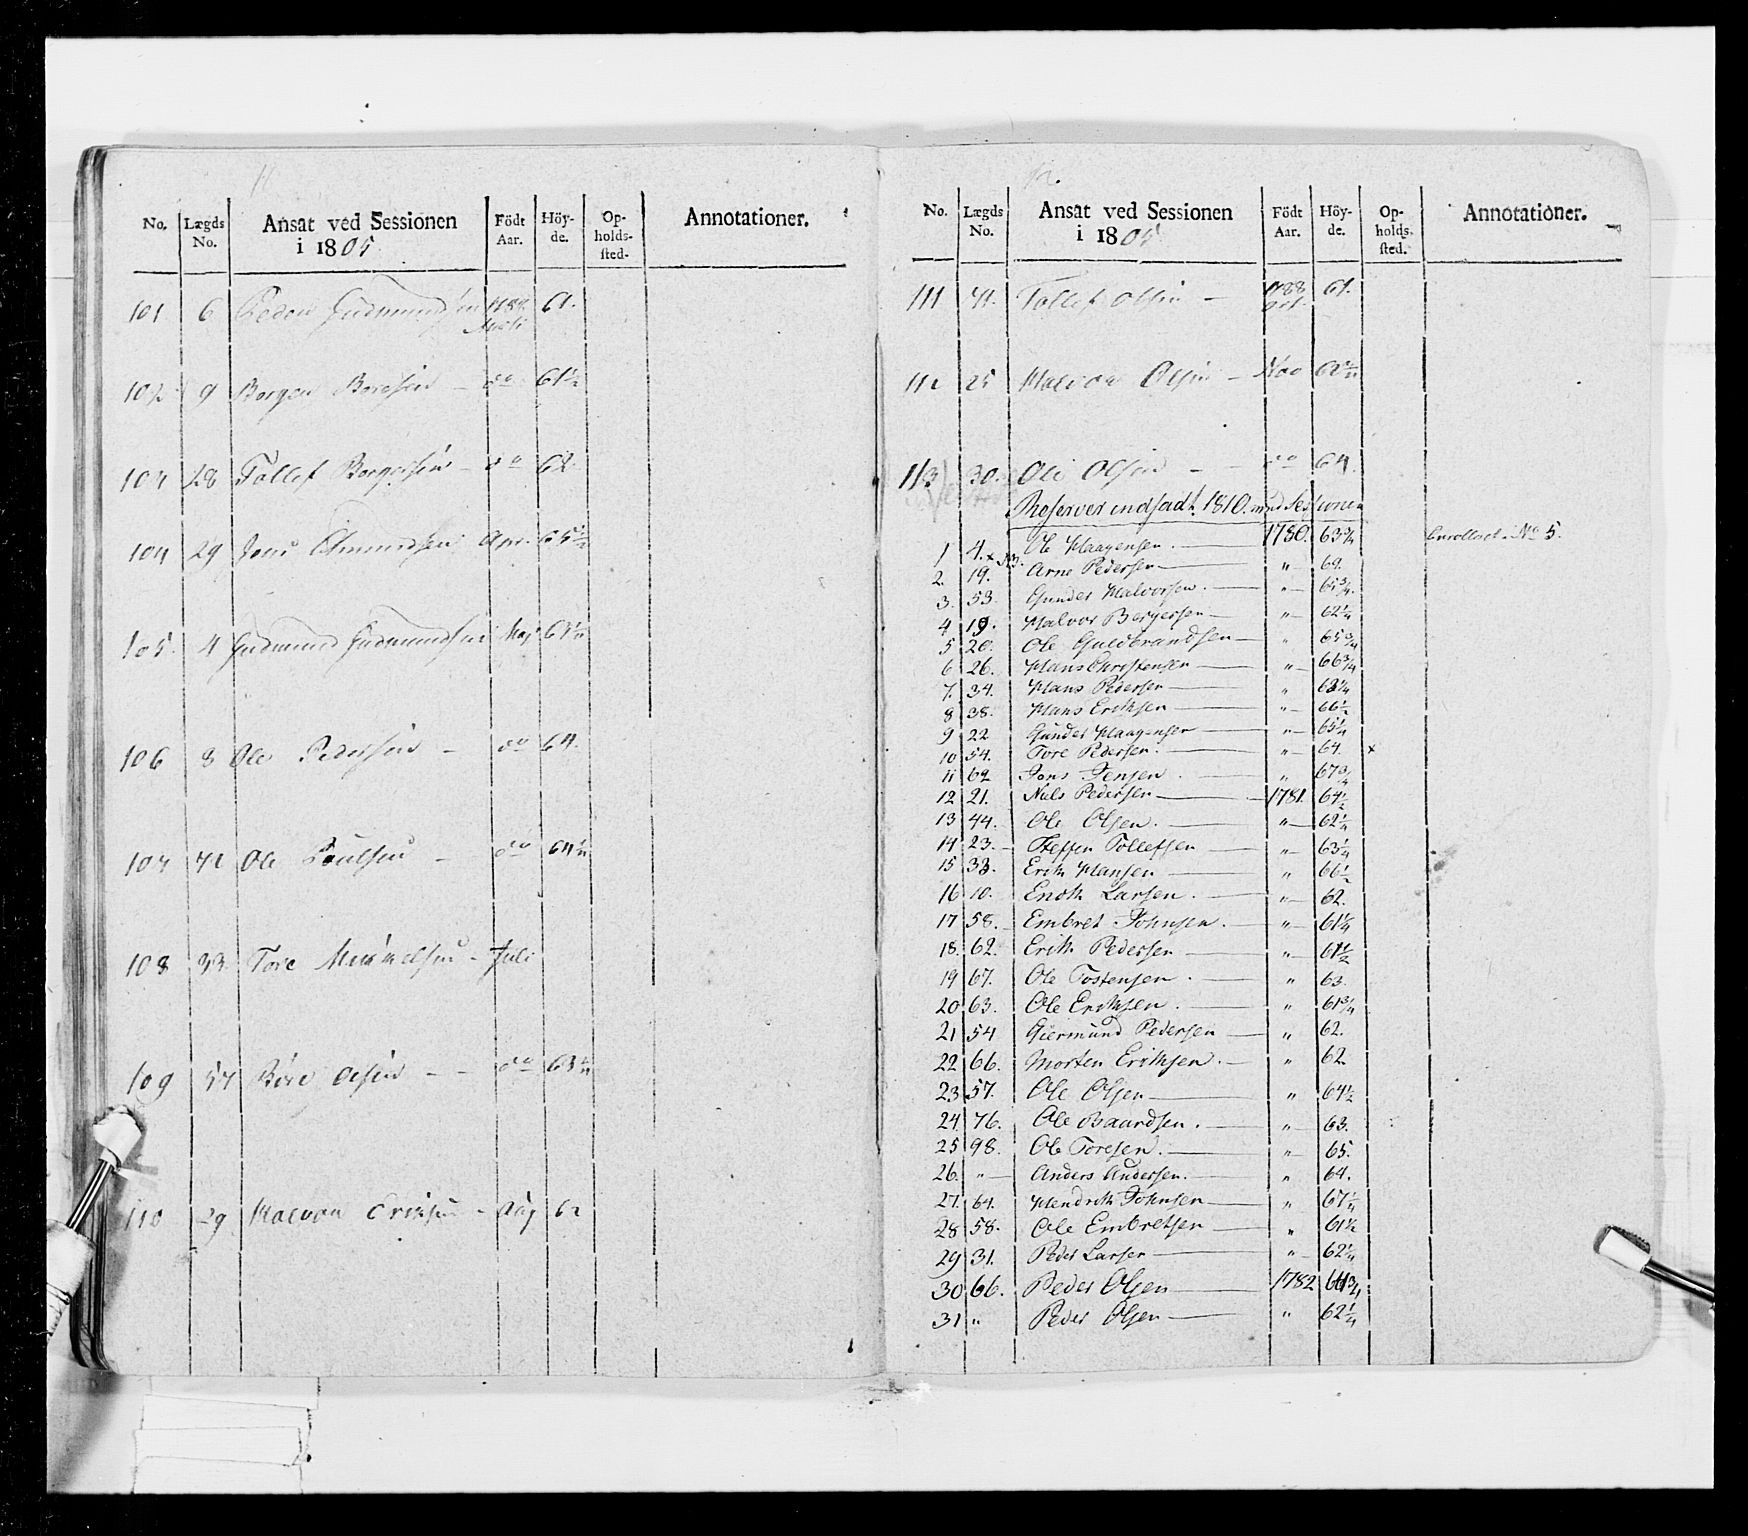 11
No. Lægds No. Ansat ved Sessionen i 1805 Födt Aar. Höyde. Opholdssted. Annotationer.
101 6 Gudmundsen 61.
102 9 Borgen Boresen - do 61½
28 Tollef Borgersen - do 62.
104 29 Jons Amundsen Apr. 65½
105. 4 Gudmund Gudmundsen Maj
106 8 Ole Pedersen - do 64.
Ole Poulsen - do 64¼
108 33. Tore - Juli
109 57 Tore Olsen - - do
110 29 Halvor Eriksen - Aug 62
12.
No. Lægds No. Ansat ved Sessionen i 1805 Födt Aar. Höyde. Opholdssted. Annotationer.
111 41. Tollef Olsen - 1788 Oct. 61.
112 25 Halvor Olsen - Nov
113 30. Ole Olsen - do 64.
Reserver indsadt 1810. ved Sessionen
1 4. Ole Haagensen. 1780. 63¾ Enrolleret No 5.
2. 19. Arne Pedersen " 62.
3. 53. Gunder Halvorsen. " 65¾.
4 19. Halvor Bergersen " 62¼
5 20. Ole Guldbrandsen " 65¾
6 26. Hans Christensen " 66¾
7. 34. Hans Pedersen "
8 38. Hans Eriksen " 66½
9 22 Gunder Haagensen " 65¼
10 54. Tore Pedersen. " 64. x
11 62 Jons Jensen. " 67¾
12 21. Niels Pedersen 1781. 64½
13 44. Ole Olsen. " 62¼
14 23. Steffen Tollefsen " 63¼
15 33. Erik Hansen " 66½
16 10. Larsen. " 62.
17 58. Embret Johnsen. " 61¼
18. 62. Erik Pedersen " 61½
19 67. Ole Tostensen. " 63.
20 63. Ole Eriksen. " 61¾
21 54 Giermund Pedersen " 62.
22 66. Morten Eriksen. " 62
23 57. Ole Olsen " 64½
24 76. Ole Baardsen. " 63.
25 98. Ole Toresen. " 65.
26. " Anders Andersen. " 64.
27. 64. Hendrik Johnsen " 67¼
28 58. Ole Embretsen " 61½
29 31. Peder Larsen " 62¼
30 66. Peder Olsen 1782
31 " Peder Olsen " 62¼